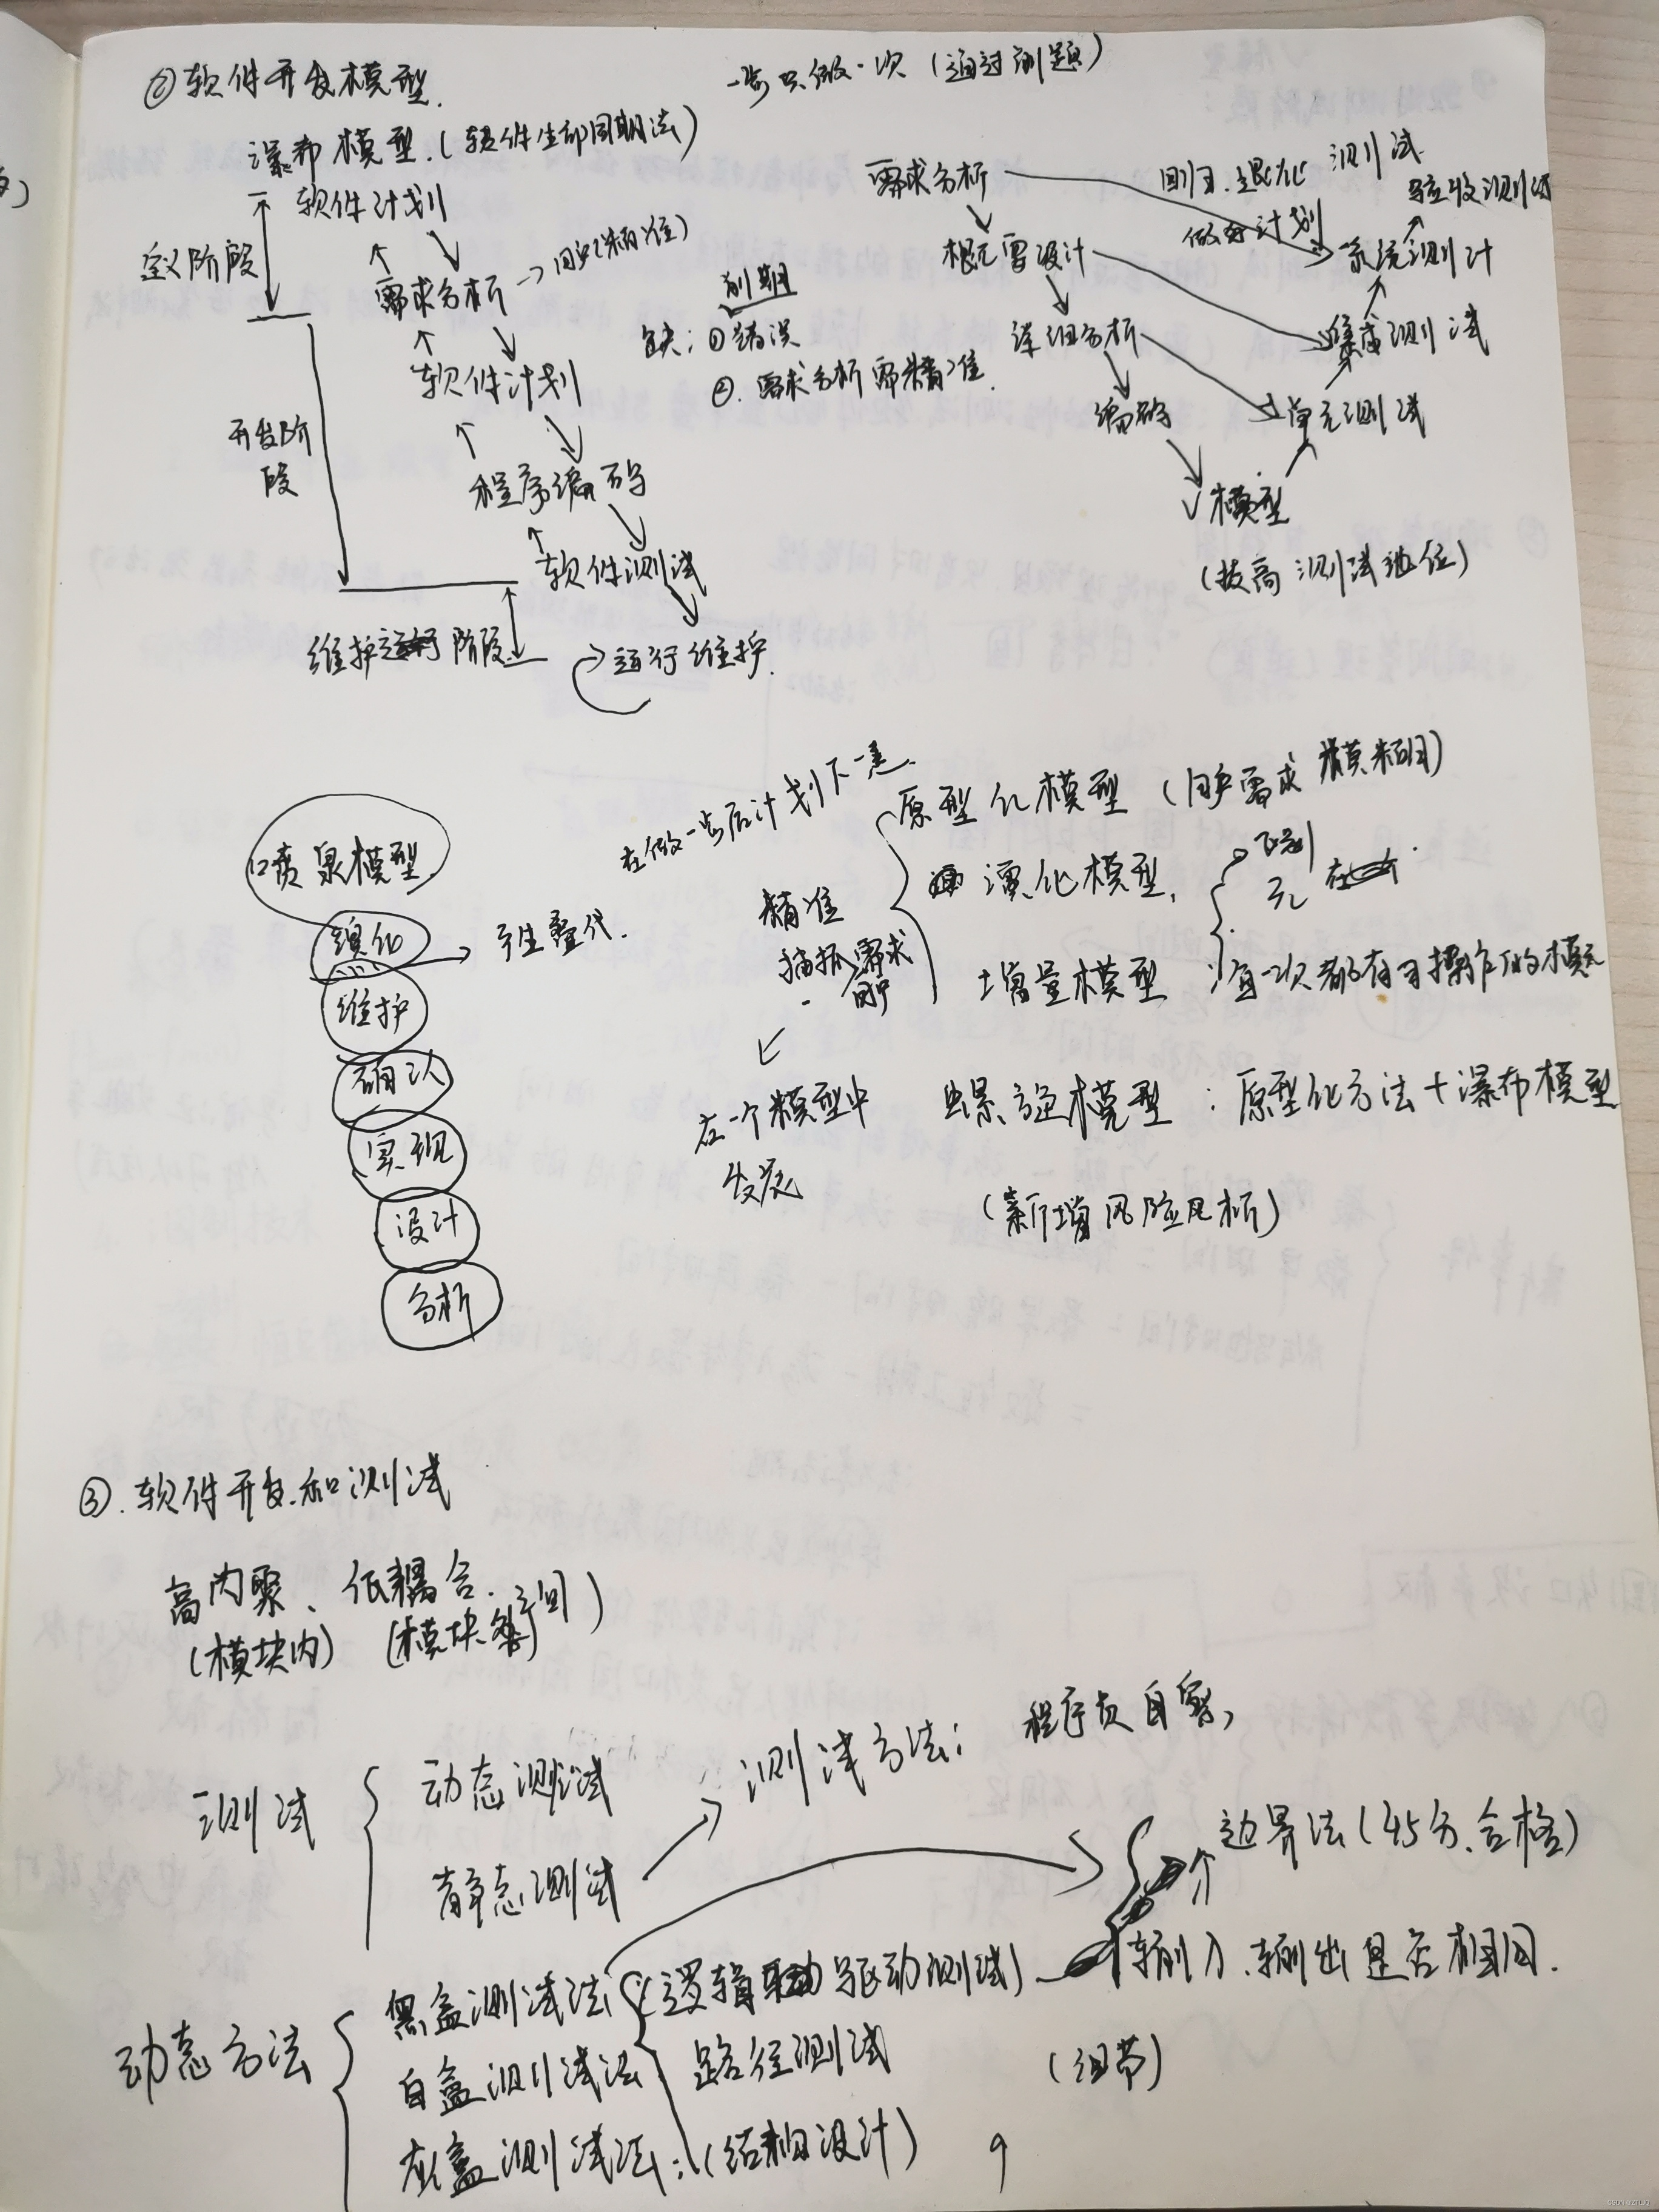 ②软件开发模型.
一步只做一次（通过刷题）
瀑布模型.（软件生命周期法）
软件计划
定义阶段
需求分析 → 用户（精准）
软件计划
开发阶段
程序编码
软件测试
维护 阶段
运行维护.
前期
缺：①错误
②.需求分析需精准.
需求分析
测试
验收测试
做好计划
系统测计
概要设计
详细分析
集成测试
编码
单元测试
V模型
（提高测试地位）
喷泉模型
演化
维护
确认
实现
设计
分析
→ 产生叠代.
在做一步后计划下一走
精准
捕抓需求
用户
在一个模型中
发展
原型化模型（用户需求模糊）
演化模型.
增量模型
每一次都有可操作的模型
螺旋模型：原型化方法＋瀑布模型
（新增风险风析）
③.软件开发和测试
高内聚、低耦合.
（模块内）（模块 之间）
测试
动态测试
静态测试
测试方法：程序员自
边界法（45分.合格）
动态方法
黑盒测试法
（逻辑 驱动测试）
输入.输出是否相同.
白盒测试法
路径测试
灰盒测试法：（结构设计）
CSDN @ZTLJQ